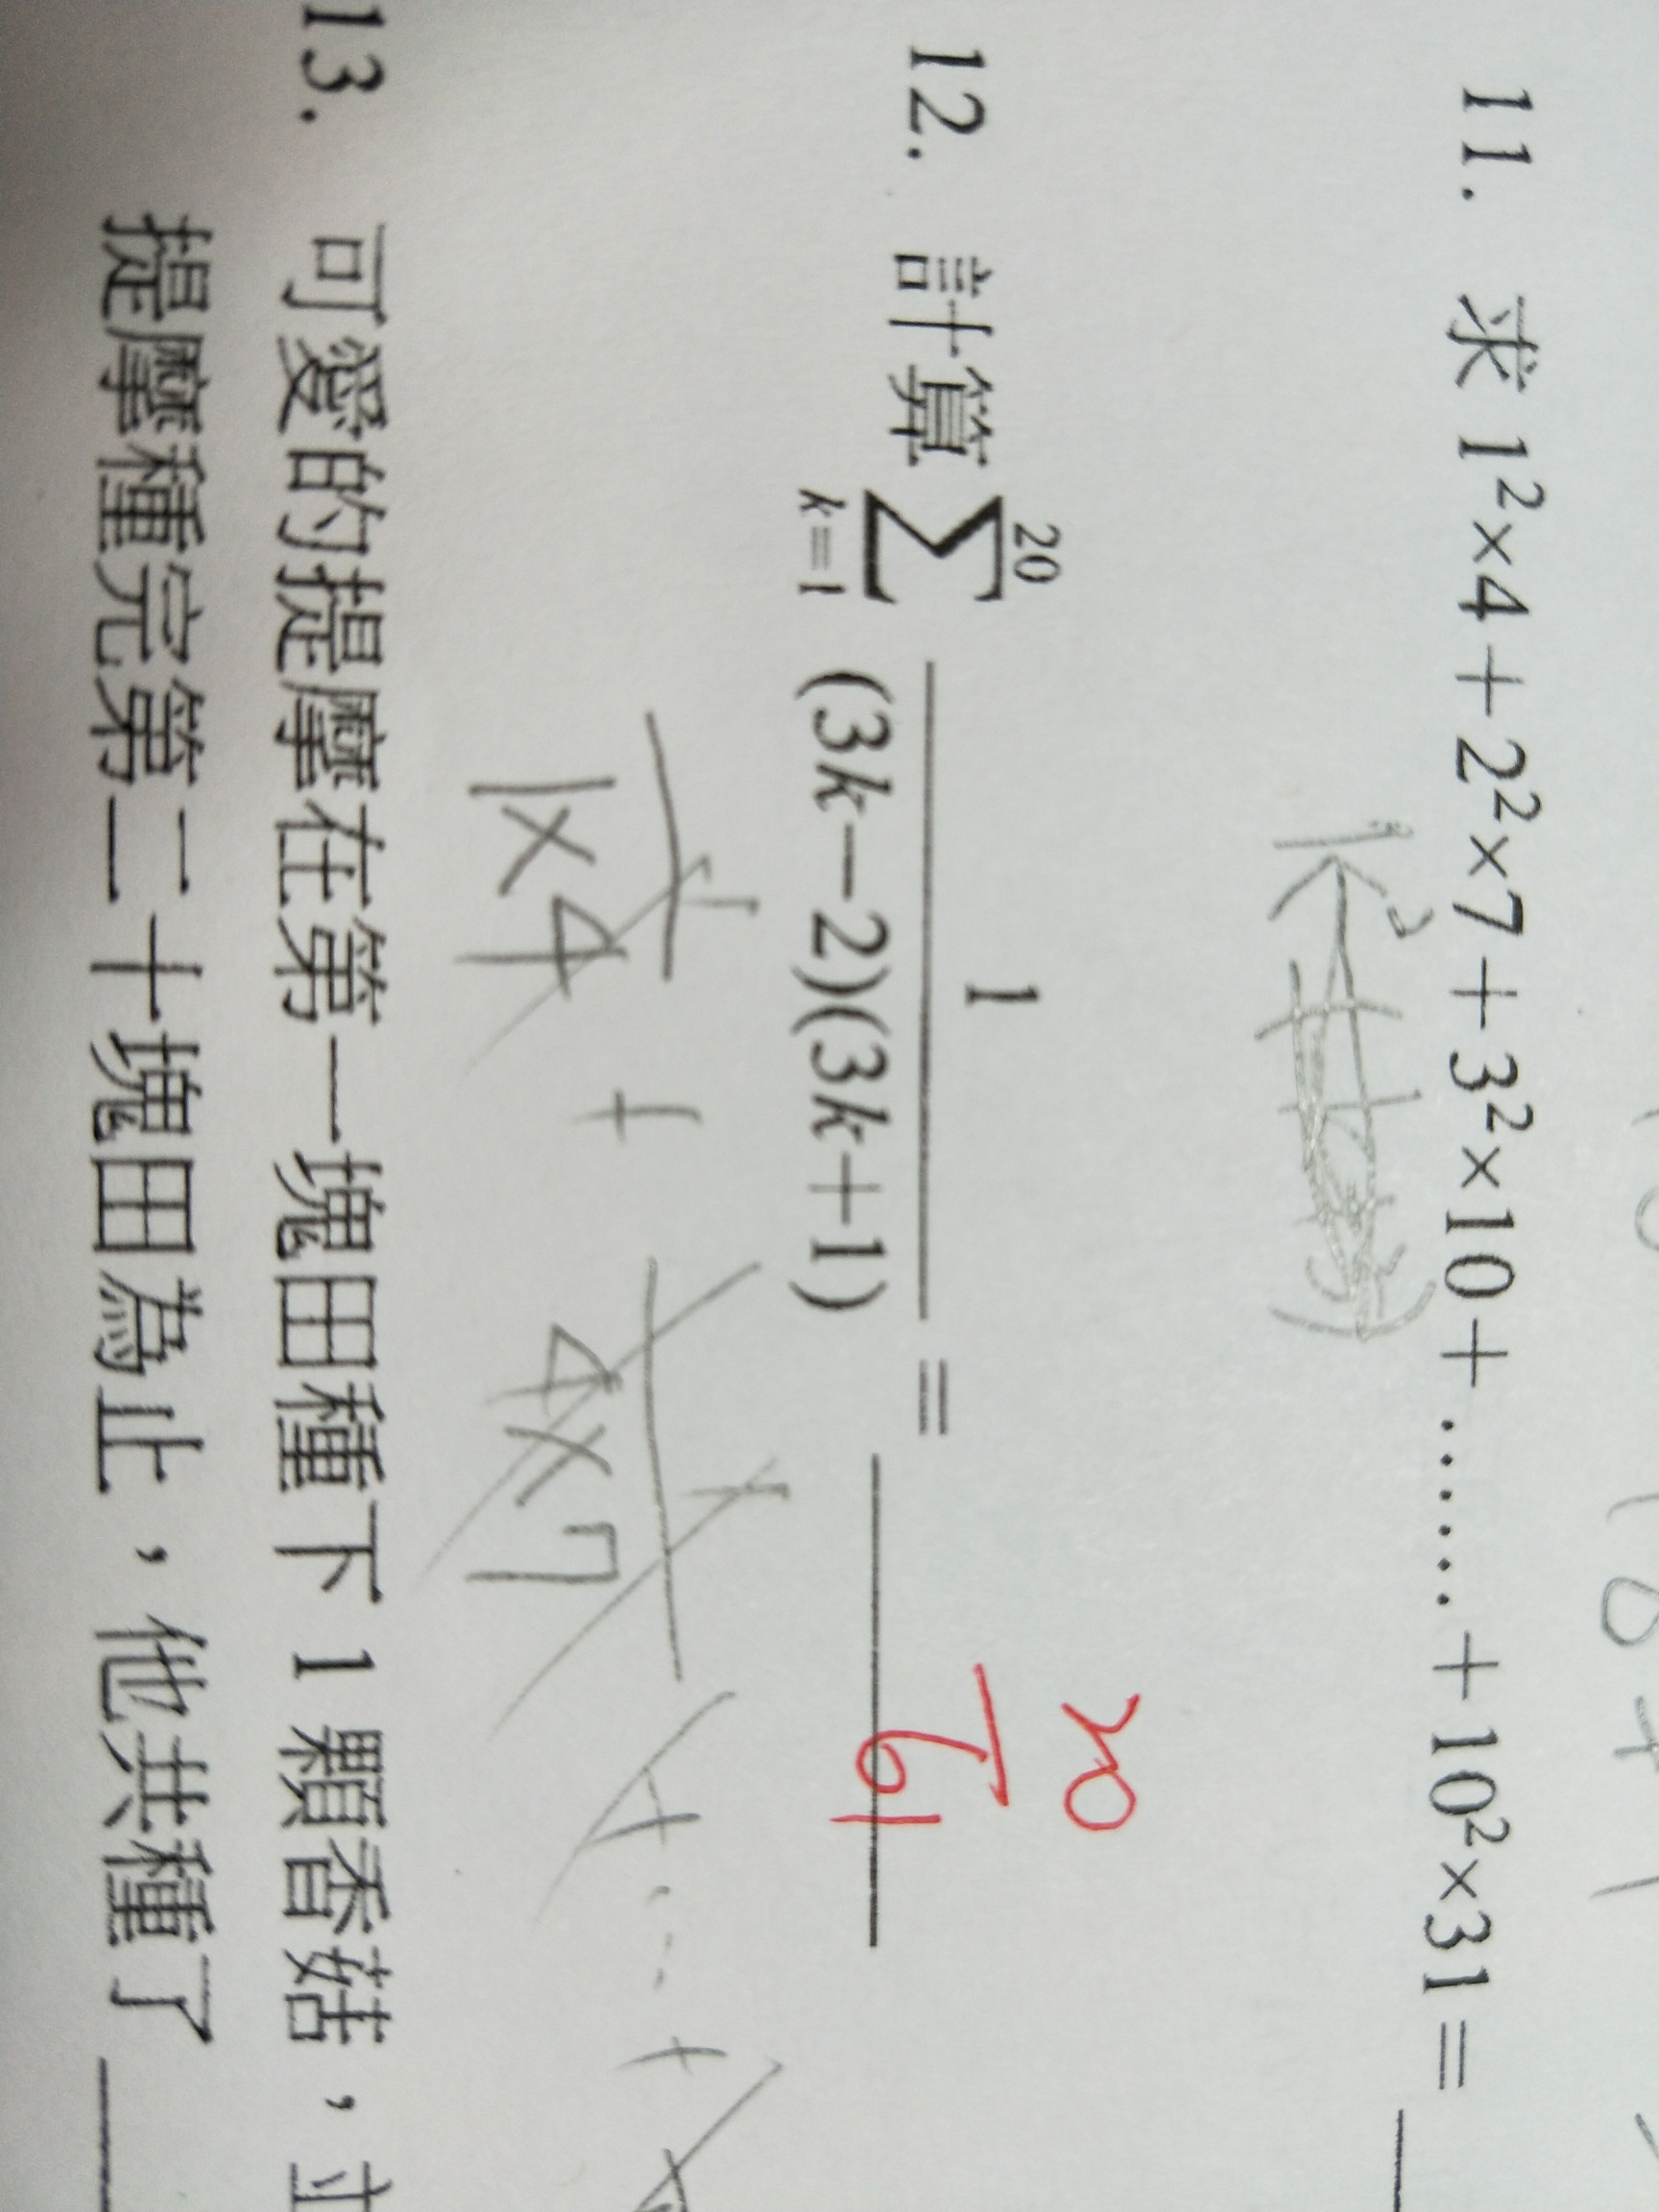 11. 求 1²×4+2²×7+3²×10+⋯⋯+10²×31=
k²
12. 計算 \sum_{k=1}^{20} \frac{1}{(3k-2)(3k+1)} =
\frac{20}{61}
\frac{1}{1×4} + \frac{1}{4×7} + ⋯ +
13. 可愛的提摩在第一塊田種下 1 顆香菇,
提摩種完第二十塊田為止,他共種了